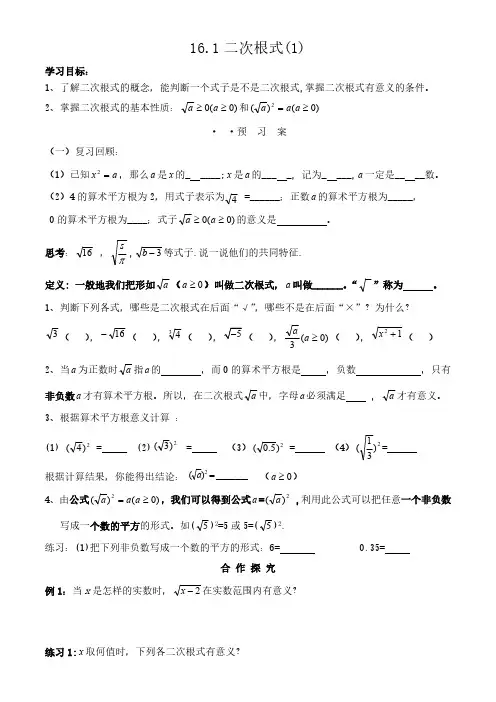 16.1二次根式(1)
学习目标:
1、了解二次根式的概念，能判断一个式子是不是二次根式,掌握二次根式有意义的条件。
2、掌握二次根式的基本性质：√a ≥ 0(a ≥ 0)和(√a)² = a(a ≥ 0)
··预 习 案
（一）复习回顾：
（1）已知x² = a，那么a是x的_ ____；x是a的___ _，记为_ ___,a一定是__ __数。
（2）4的算术平方根为2，用式子表示为√4 =______；正数a的算术平方根为_____，
0的算术平方根为____；式子√a ≥ 0(a ≥ 0)的意义是 。
思考：√16 ，√(s/π)，√(b−3)等式子.说一说他们的共同特征.
定义: 一般地我们把形如√a（a ≥ 0）叫做二次根式，a叫做______。“√ ”称为 。
1、判断下列各式，哪些是二次根式在后面“√”，哪些不是在后面“×”？为什么？
√3（ ），−√16（ ），∛4（ ），√−5（ ），√(a/3)(a ≥ 0)（ ），√(x²+1)（ ）
2、当a为正数时√a指a的 ，而0的算术平方根是 ，负数 ，只有
非负数a才有算术平方根。所以，在二次根式√a中，字母a必须满足 ，√a才有意义。
3、根据算术平方根意义计算 ：
(1) (√4)² = (2) (√3)² = （3）(√0.5)² = （4）(√(1/3))² =
根据计算结果，你能得出结论： (√a)² =______ （a ≥ 0）
4、由公式(√a)² = a(a ≥ 0)，我们可以得到公式a=(√a)² ,利用此公式可以把任意一个非负数
写成一个数的平方的形式。如(√5)²=5或5=(√5)².
练习：(1)把下列非负数写成一个数的平方的形式：6= 0.35=
合 作 探 究
例1：当x是怎样的实数时，√(x−2)在实数范围内有意义？
练习1:x取何值时，下列各二次根式有意义？